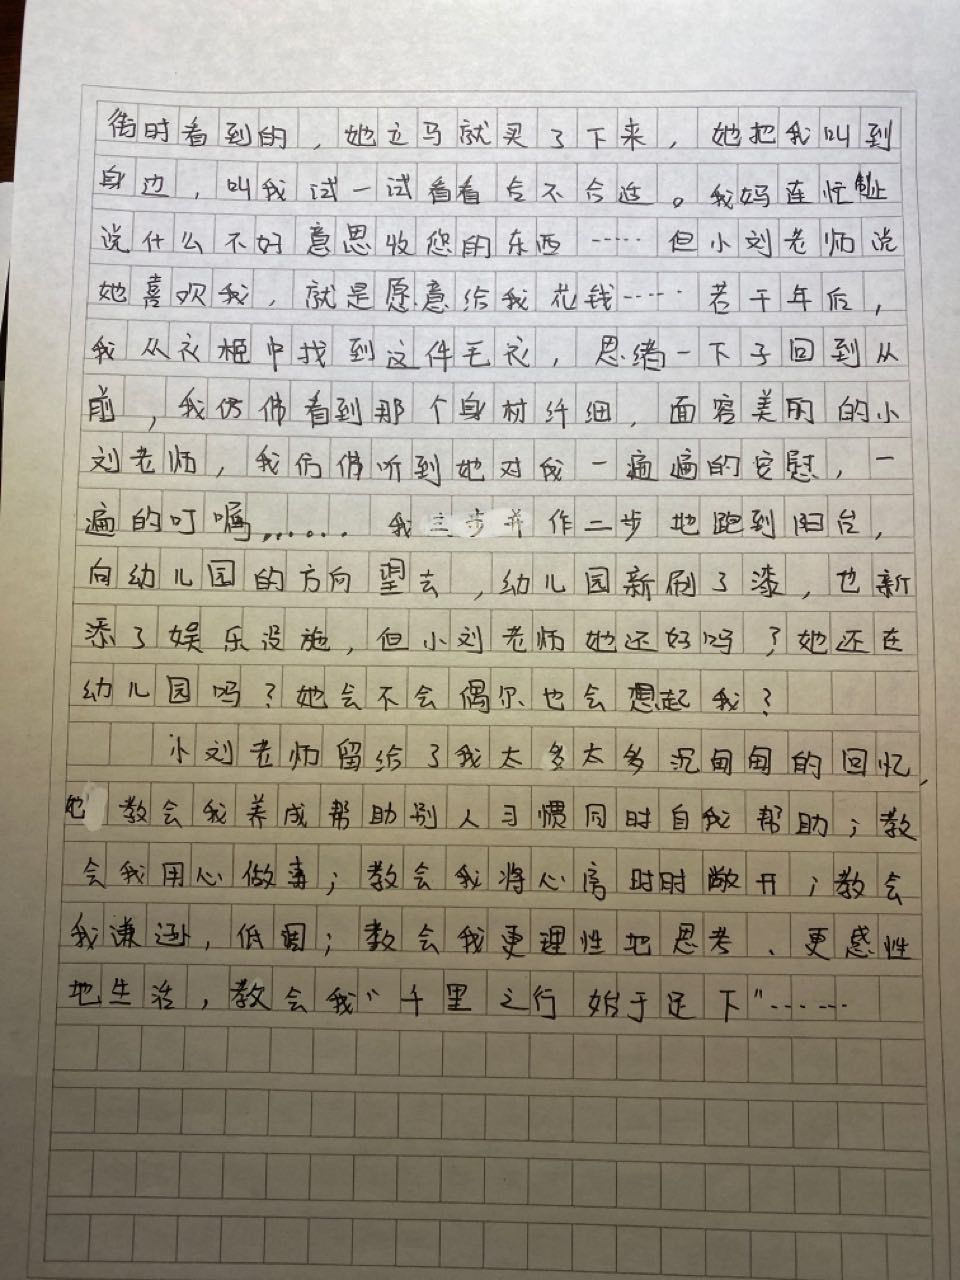 街时看到的，她立马就买了下来，她把我叫到
身边，叫我试一试看看合不合适。我妈连忙制止
说什么不好意思收您的东西……但小刘老师说
她喜欢我，就是愿意给我花钱……若干年后，
我从衣柜中找到这件毛衣，思绪一下子回到从
前，我仿佛看到那个身材纤细，面容美丽的小
刘老师，我仿佛听到她对我一遍遍的安慰，一
遍的叮嘱，……我三步并作二步地跑到阳台，
向幼儿园的方向望去，幼儿园新刷了漆，也新
添了娱乐设施，但小刘老师她还好吗？她还在
幼儿园吗？她会不会偶尔也会想起我？
小刘老师留给了我太多太多沉甸甸的回忆，
她教会我养成帮助别人习惯同时自我帮助；教
会我用心做事；教会我将心房时时敞开；教会
我谦逊，低调；教会我更理性地思考、更感性
地生活，教会我“千里之行始于足下”……